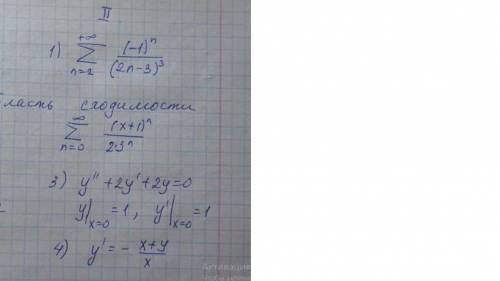 II
1) \sum_{n=2}^{+\infty} \frac{(-1)^n}{(2n-3)^3}
ласть сходимости
\sum_{n=0}^{\infty} \frac{(x+1)^n}{2 \cdot 3^n}
3) y'' + 2y' + 2y = 0
y|_{x=0} = 1, y'|_{x=0} = 1
4) y' = - \frac{x+y}{x}
Активация